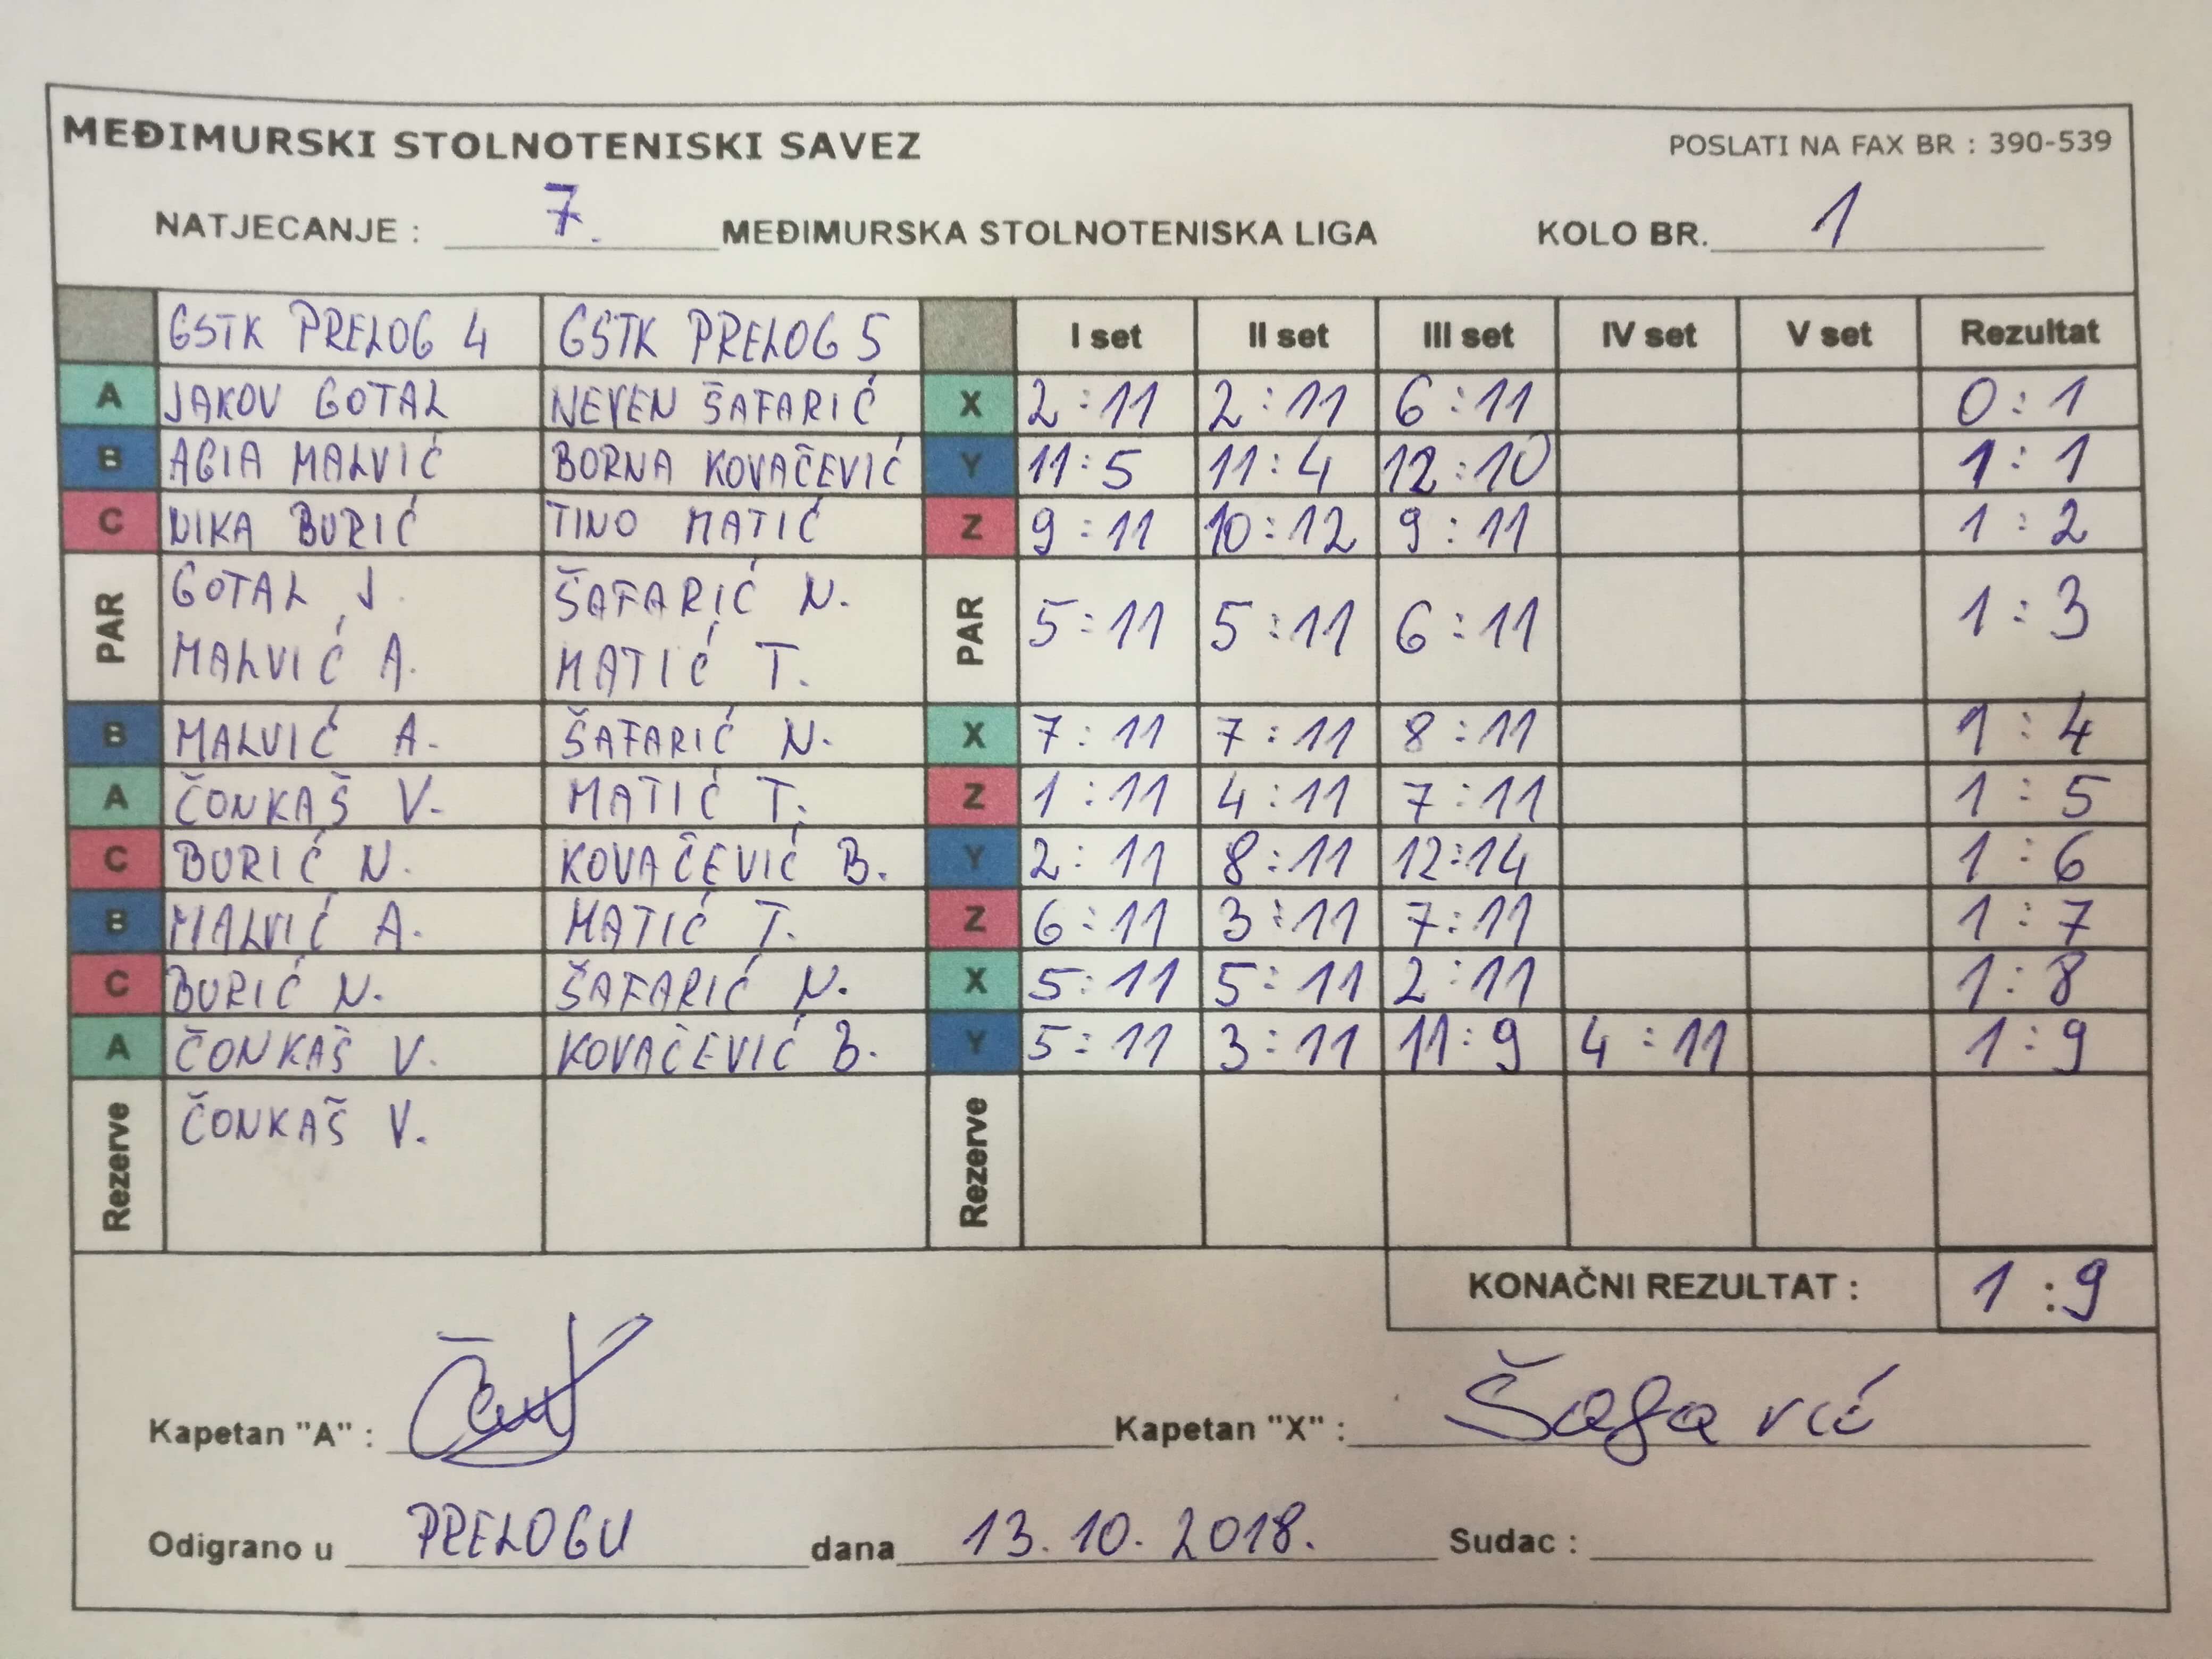 MEĐIMURSKI STOLNOTENISKI SAVEZ POSLATI NA FAX BR : 390-539
NATJECANJE : 7. MEĐIMURSKA STOLNOTENISKA LIGA KOLO BR. 1
GSTK PRELOG 4 GSTK PRELOG 5 I set II set III set IV set V set Rezultat
A JAKOV GOTAL NEVEN ŠAFARIĆ X 2:11 2:11 6:11 0:1
B AGIA MALVIĆ BORNA KOVAČEVIĆ Y 11:5 11:4 12:10 1:1
C NIKA BURIĆ TINO MATIĆ Z 9:11 10:12 9:11 1:2
PAR GOTAL J. ŠAFARIĆ N. PAR 5:11 5:11 6:11 1:3
MALVIĆ A. MATIĆ T.
B MALVIĆ A. ŠAFARIĆ N. X 7:11 7:11 8:11 1:4
A ČONKAŠ V. MATIĆ T. Z 1:11 4:11 7:11 1:5
C BURIĆ N. KOVAČEVIĆ B. Y 2:11 8:11 12:14 1:6
B MALVIĆ A. MATIĆ T. Z 6:11 3:11 7:11 1:7
C BURIĆ N. ŠAFARIĆ N. X 5:11 5:11 2:11 1:8
A ČONKAŠ V. KOVAČEVIĆ B. Y 5:11 3:11 11:9 4:11 1:9
Rezerve ČONKAŠ V. Rezerve
KONAČNI REZULTAT : 1:9
Kapetan "A" : Kapetan "X" : Šafarić
Odigrano u PRELOGU dana 13.10.2018. Sudac :